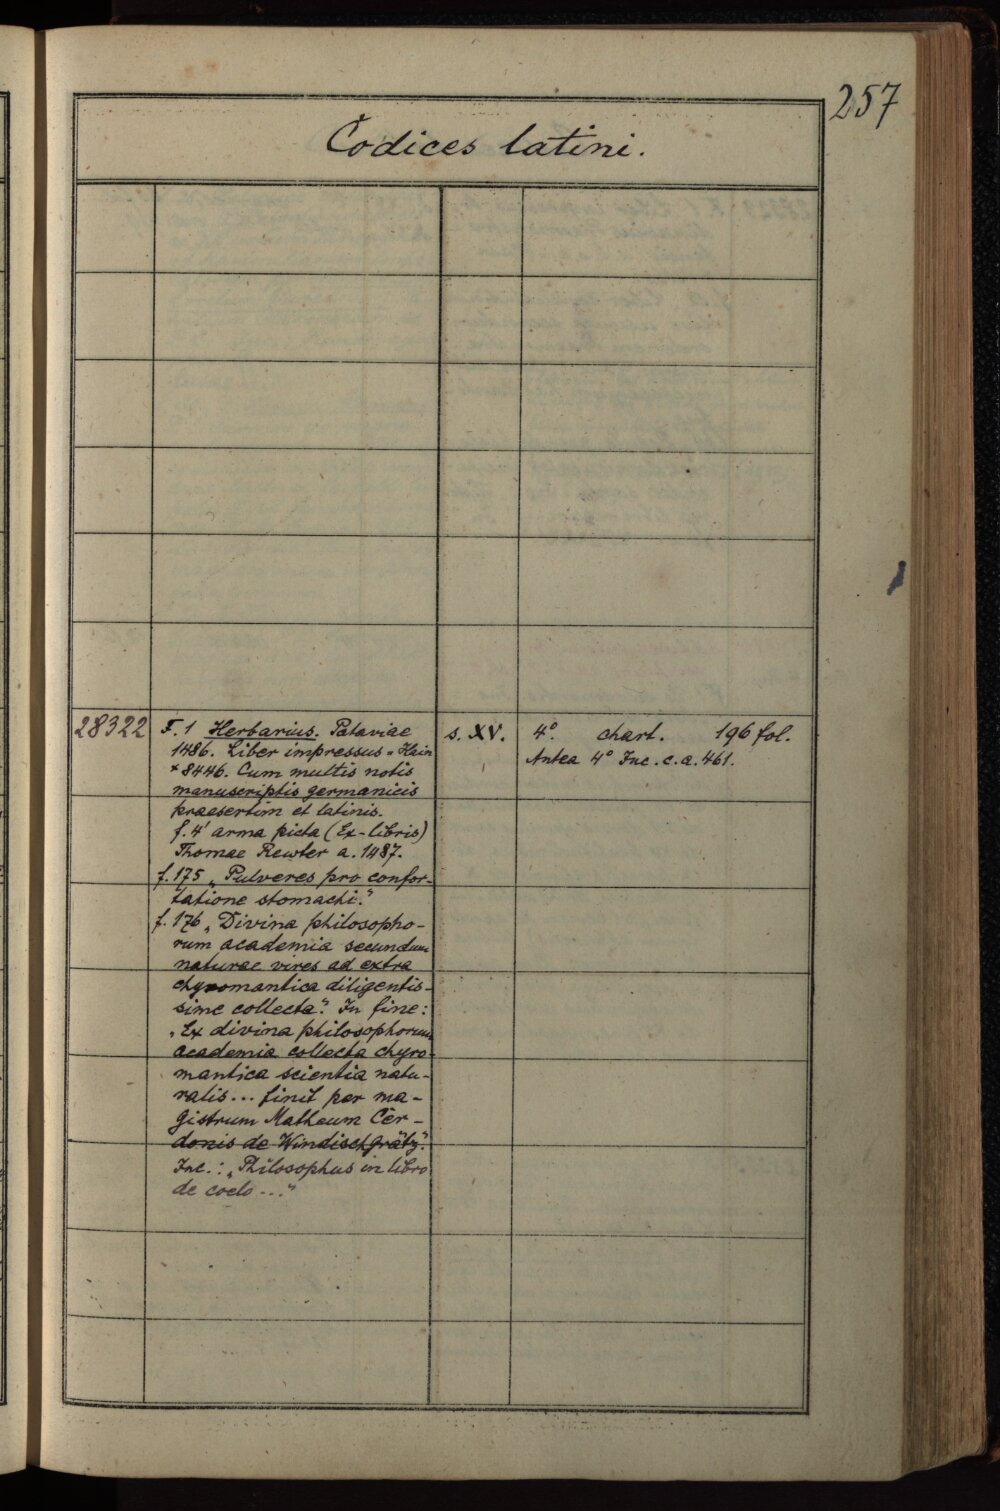 257
Codices latini.
28322
F. 1 Herbarius. Pataviae
1486. Liber impressus = Hain
* 8446. Cum multis notis
manuscriptis germanicis
praesertim et latinis.
f. 4' arma picta (Ex-libris)
Thomae Rewter a. 1487.
f. 175 „Pulveres pro confor-
tatione stomachi."
f. 176 „Divina philosopho-
rum academia secundum
naturae vires ad extra
chyromantica diligentis-
sime collecta". In fine:
„Ex divina philosophorum
academia collecta chyro-
mantica scientia natu-
ralis... finit per ma-
gistrum Matheum Cer-
donis de Windischgrätz".
Inc.: „Philosophus in libro
de coelo ..."
s. XV.
4°. chart. 196 fol.
Antea 4° Inc. c. a. 461.